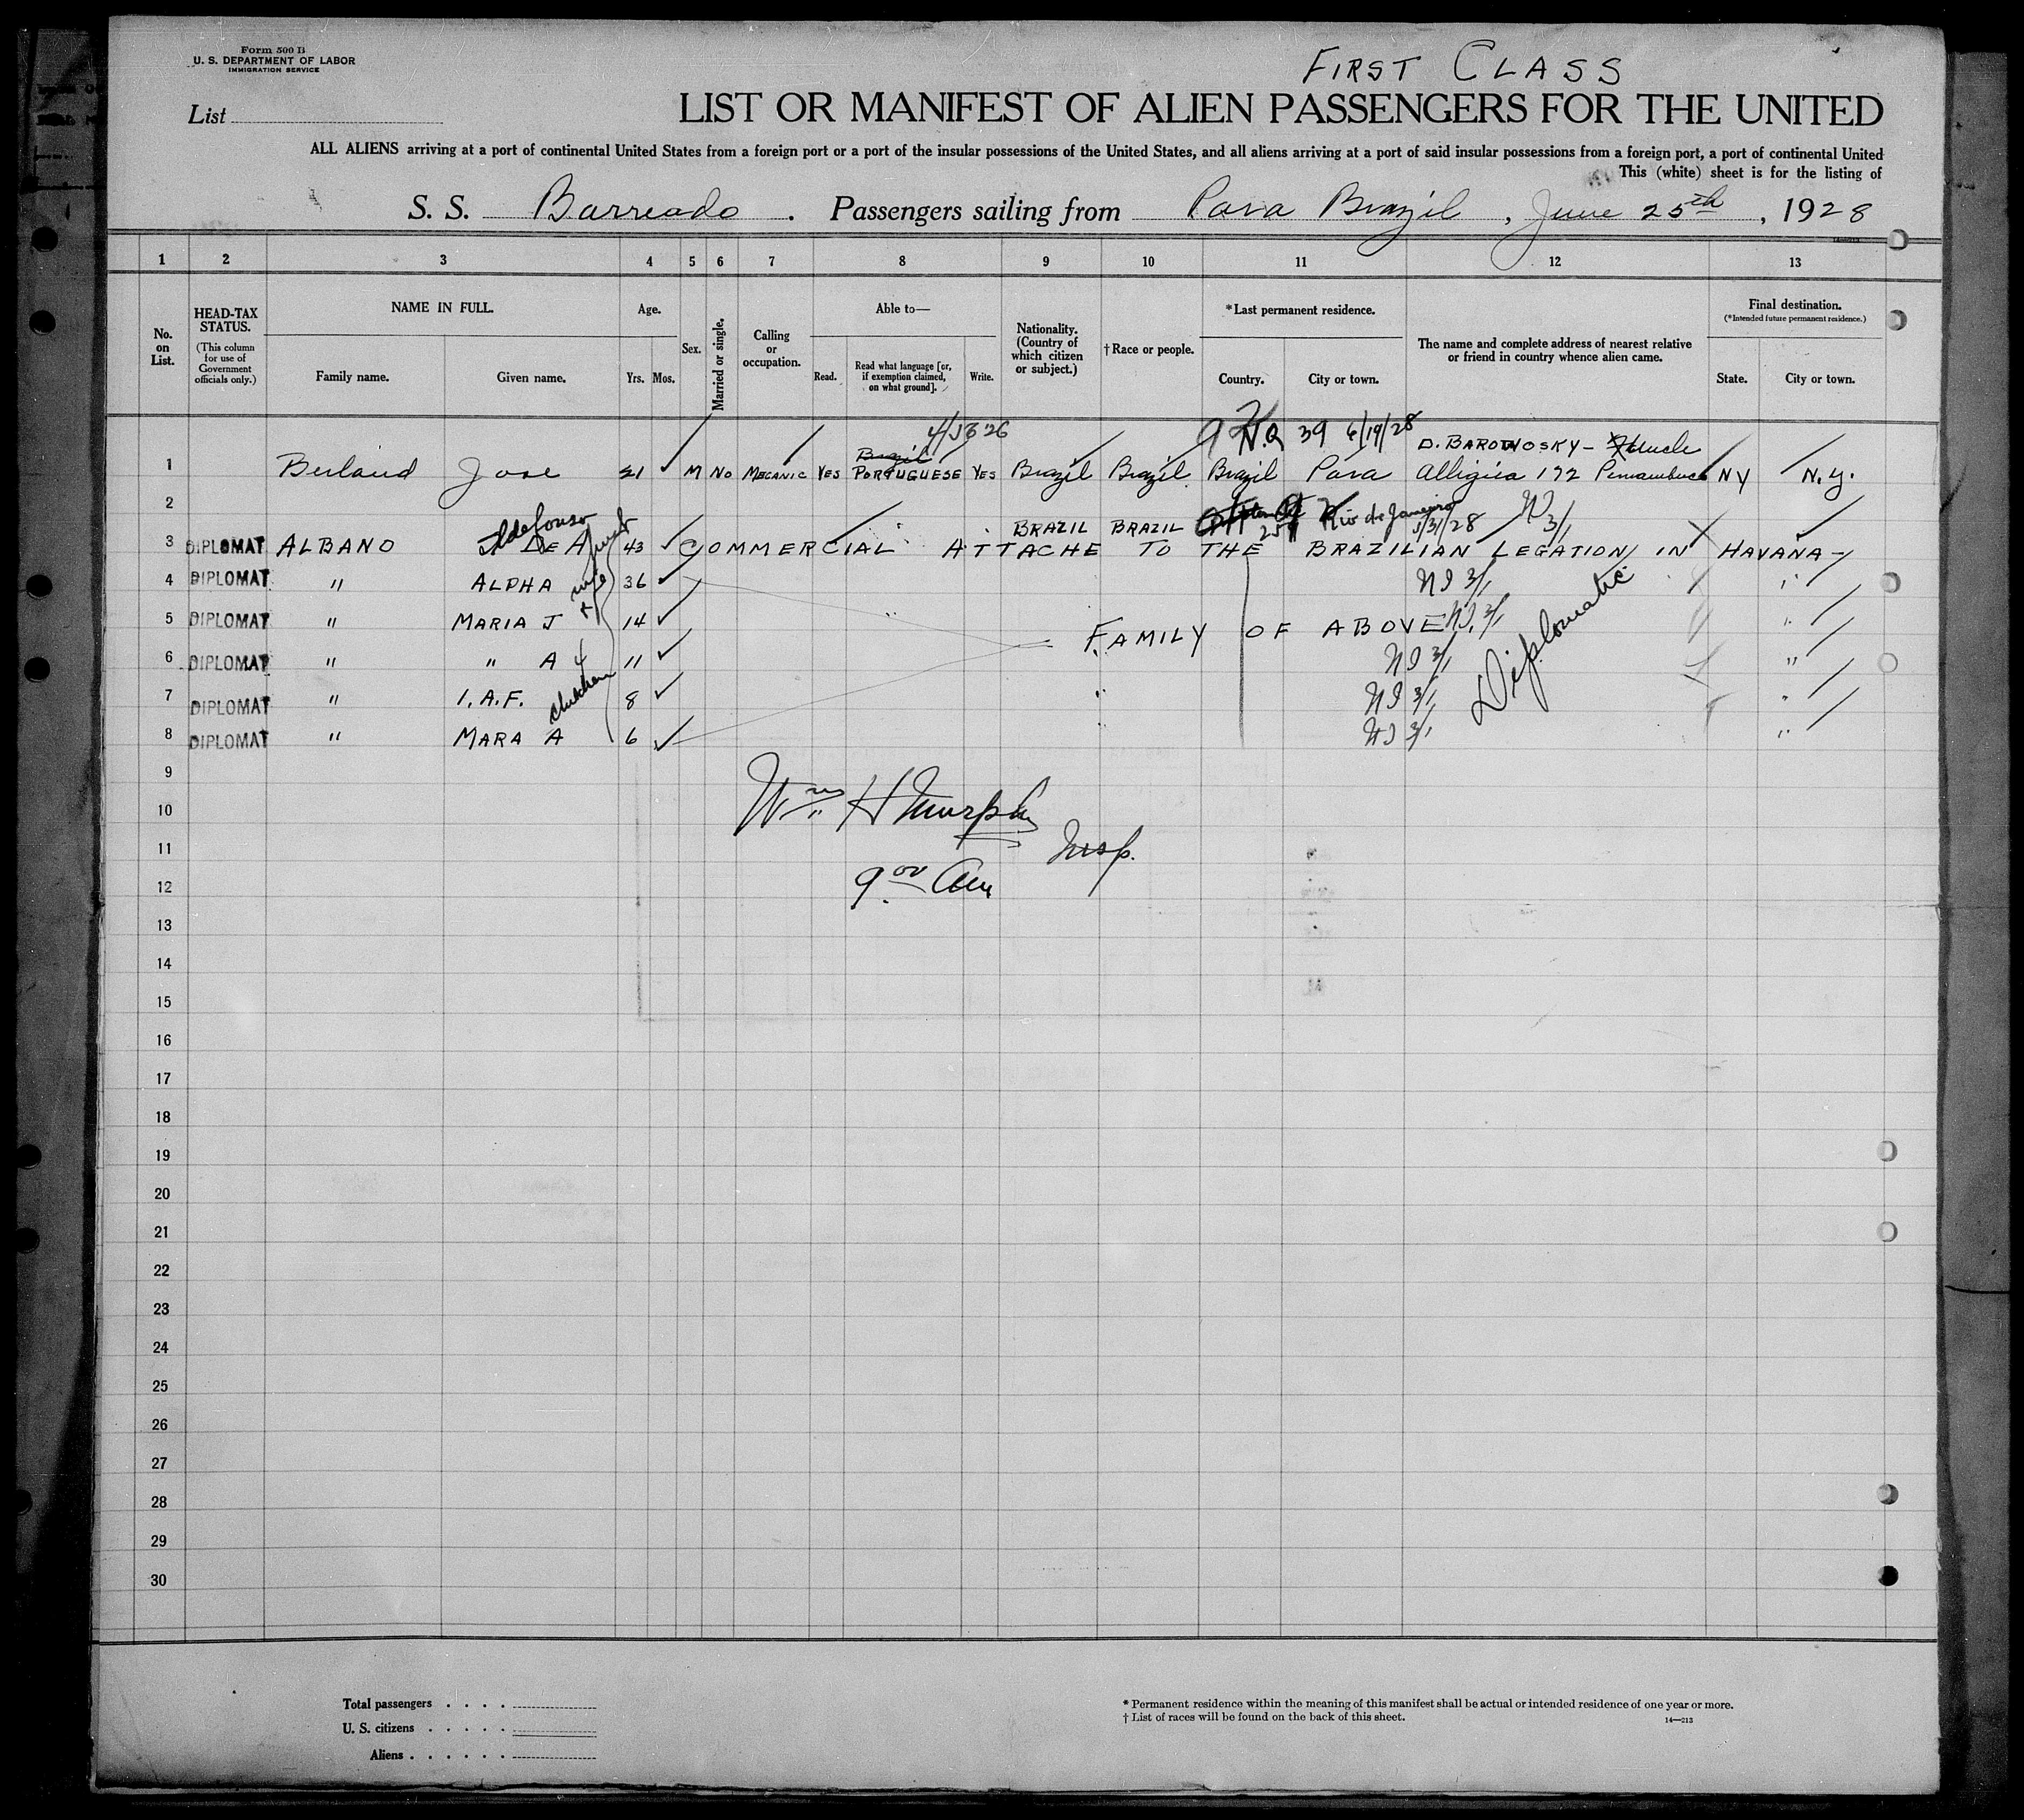 Form 500 B
U. S. DEPARTMENT OF LABOR
IMMIGRATION SERVICE
FIRST CLASS
List
LIST OR MANIFEST OF ALIEN PASSENGERS FOR THE UNITED
ALL ALIENS arriving at a port of continental United States from a foreign port or a port of the insular possessions of the United States, and all aliens arriving at a port of said insular possessions from a foreign port, a port of continental United
This (white) sheet is for the listing of
S. S. Barreado . Passengers sailing from Para Brazil , June 25th , 1928
1 2 3 4 5 6 7 8 9 10 11 12 13
No. on List.
HEAD-TAX STATUS.
(This column for use of Government officials only.)
NAME IN FULL.
Family name. Given name.
Age.
Yrs. Mos.
Sex.
Married or single.
Calling or occupation.
Able to—
Read. Read what language [or, if exemption claimed, on what ground]. Write.
Nationality. (Country of which citizen or subject.)
† Race or people.
*Last permanent residence.
Country. City or town.
The name and complete address of nearest relative or friend in country whence alien came.
Final destination.
(*Intended future permanent residence.)
State. City or town.
N.Q 39 6/19/28 D. BAROWOSKY - Uncle
1 Berland Jose 21 M NO MECANIC YES Brazil PORTUGUESE YES Brazil Brazil Brazil Para Alligria 172 Pernambuco NY N.Y.
2
Ildefonso BRAZIL BRAZIL Rio de Janeiro 5/31/28
3 DIPLOMAT ALBANO DE A 43 COMMERCIAL ATTACHE TO THE BRAZILIAN LEGATION IN HAVANA -
4 DIPLOMAT " ALPHA wife 36 "
5 DIPLOMAT " MARIA J 14 FAMILY OF ABOVE "
6 DIPLOMAT " " A 4 11 "
7 DIPLOMAT " I.A.F. children 8 "
8 DIPLOMAT " MARA A 6 "
Diplomatic
9
10
Wm H Murphy
11
Insp.
12
9 00 Am
13
14
15
16
17
18
19
20
21
22
23
24
25
26
27
28
29
30
Total passengers . . . .
U. S. citizens . . . . .
Aliens . . . . . .
* Permanent residence within the meaning of this manifest shall be actual or intended residence of one year or more.
† List of races will be found on the back of this sheet. 14—213